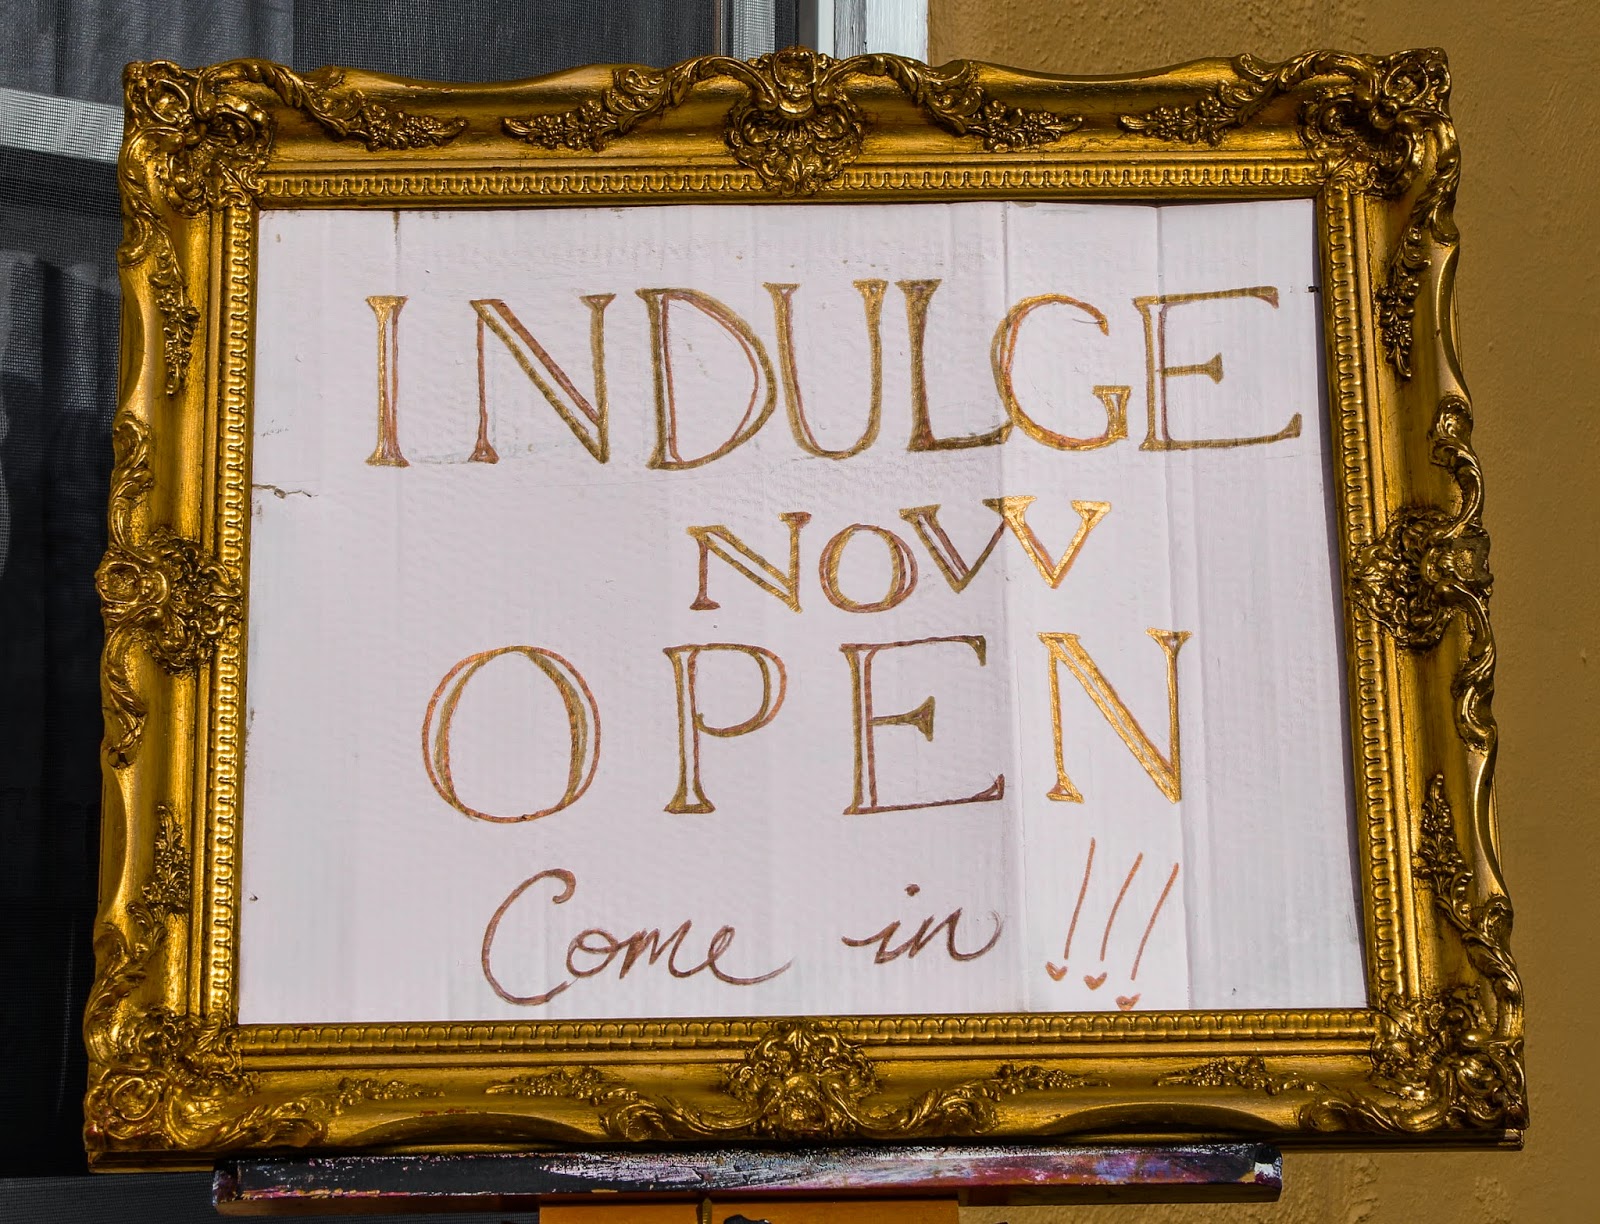 INDULGE
NOW
OPEN
Come in !!!